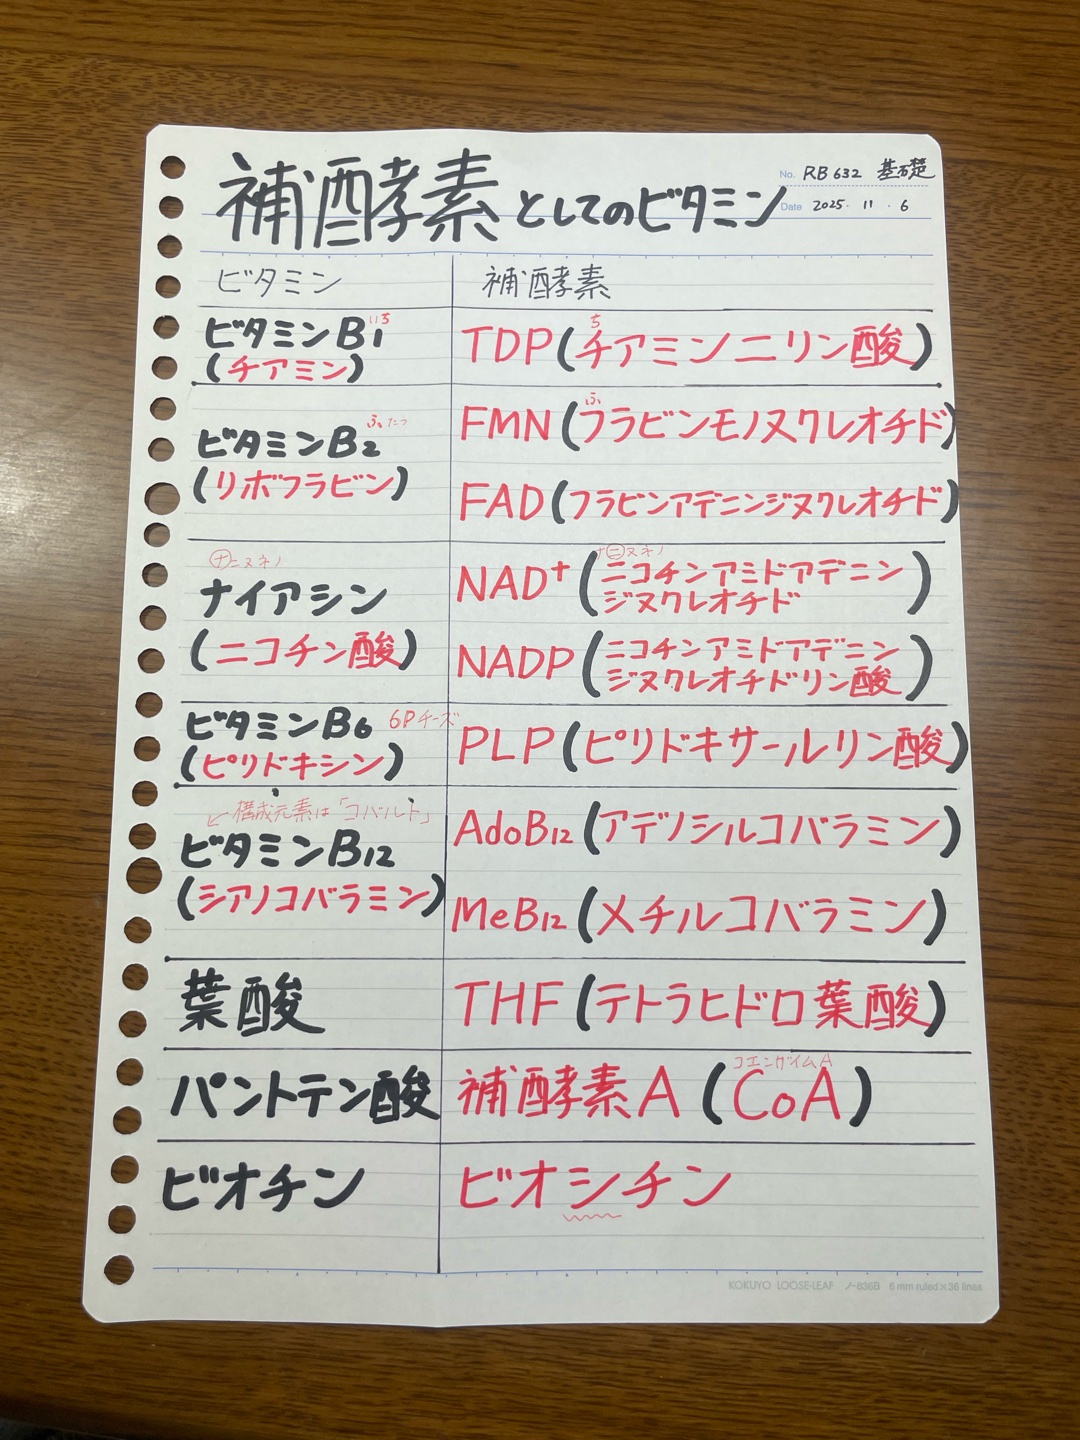 補酵素としてのビタミン
No. RB632 基礎
Date 2025. 11 . 6
ビタミン 補酵素
いち
ビタミンB1
(チアミン)
ち
TDP(チアミンニリン酸)
ふたつ
ビタミンB2
(リボフラビン)
ふ
FMN(フラビンモノヌクレオチド)
FAD(フラビンアデニンジヌクレオチド)
ナニヌネノ
ナイアシン
(ニコチン酸)
ナニヌネノ
NAD+(ニコチンアミドアデニン
ジヌクレオチド)
NADP(ニコチンアミドアデニン
ジヌクレオチドリン酸)
ビタミンB6 6Pチーズ
(ピリドキシン)
PLP(ピリドキサールリン酸)
↙構成元素は「コバルト」
ビタミンB12
(シアノコバラミン)
AdoB12(アデノシルコバラミン)
MeB12(メチルコバラミン)
葉酸
THF(テトラヒドロ葉酸)
パントテン酸
コエンザイムA
補酵素A(CoA)
ビオチン
ビオシチン
KOKUYO LOOSE-LEAF ノ-836B 6 mm ruled×36 lines